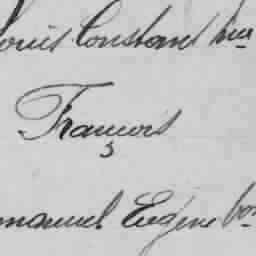 Louis Constant
François
Emmanuel Eugène